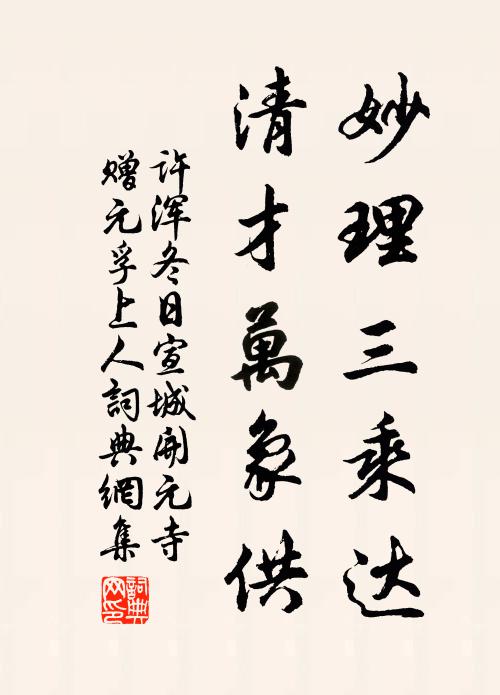 妙理三乘达
清才萬象供
许浑冬日宣城開元寺
赠元孚上人詞典網集
詞典
网印